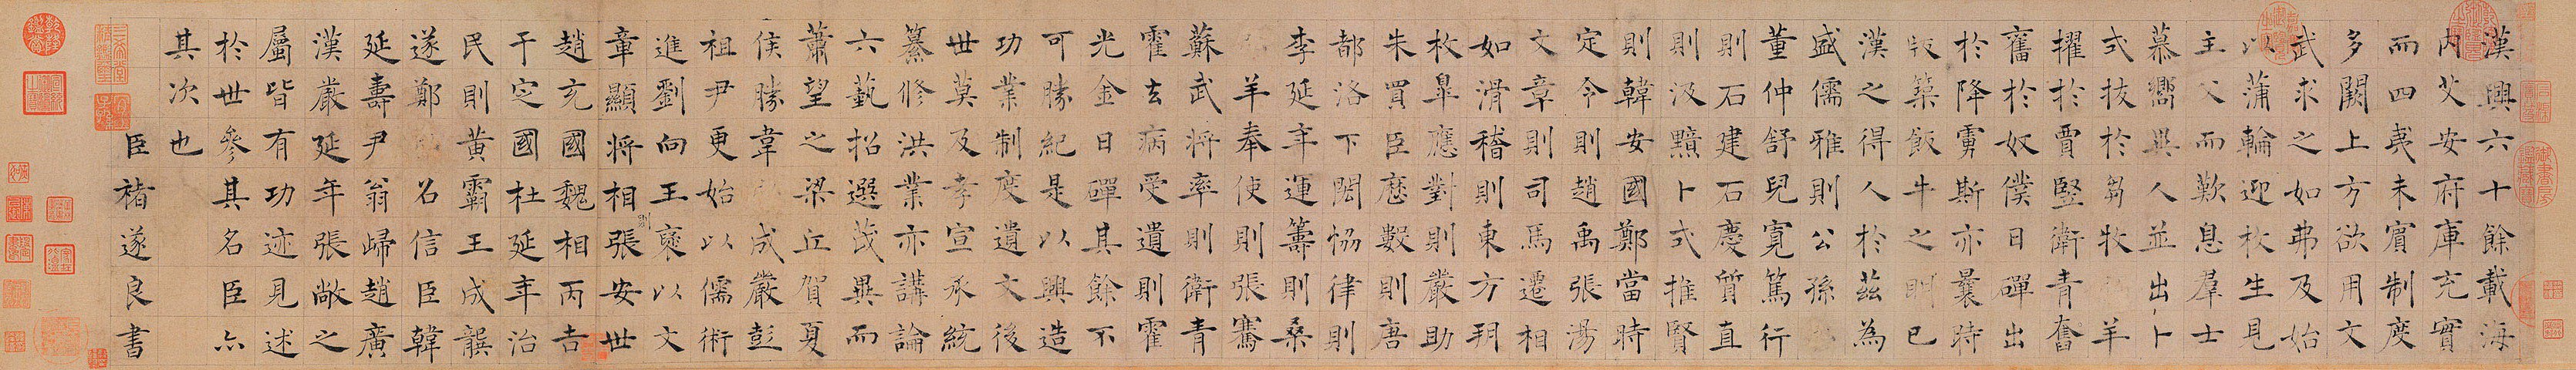 漢興六十餘載海
內艾安府庫充實
而四夷未賓制度
多闕上方欲用文
武求之如弗及始
以蒲輪迎枚生見
主父而歎息羣士
慕嚮異人並出卜
式拔於芻牧羊
擢於賈豎衛青奮
舊於奴僕日磾出
於降虜斯亦曩時
版築飯牛之明已
漢之得人於茲為
盛儒雅則公孫
董仲舒兒寬篤行
則石建石慶質直
則汲黯卜式推賢
則韓安國鄭當時
定令則趙禹張湯
文章則司馬遷相
如滑稽則東方朔
枚皋應對則嚴助
朱買臣歷數則唐
都洛下閎協律則
李延年運籌則桑
羊奉使則張騫
蘇武將率則衛青
霍去病受遺則霍
光金日磾其餘不
可勝紀是以興造
功業制度遺文後
世莫及孝宣承統
纂修洪業亦講論
六藝招選茂異而
蕭望之梁丘賀夏
侯勝韋成嚴彭
祖尹更始以儒術
進劉向王褒以文
章顯將相則張安世
趙充國魏相丙吉
于定國杜延年治
民則黃霸王成龔
遂鄭召信臣韓
延壽尹翁歸趙廣
漢嚴延年張敞之
屬皆有功迹見述
於世參其名臣亦
其次也
臣褚遂良書
三希堂精鑑璽
宜子孫
乾隆鑑賞